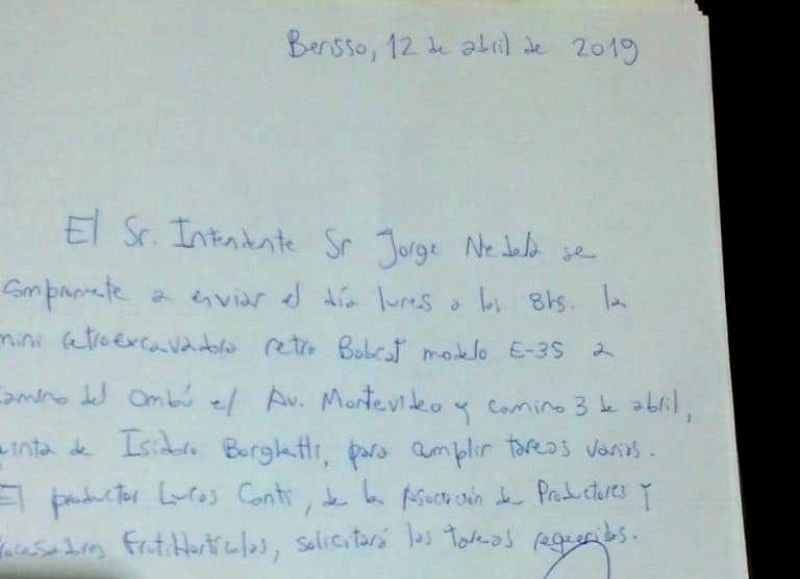 Berisso, 12 de abril de 2019
El Sr. Intendente Sr Jorge Nedela se
compromete a enviar el día lunes a las 8hs. la
mini retroexcavadora retro Bobcat modelo E-35 a
camino del Ombú e/ Av. Montevideo y camino 3 de abril,
quinta de Isidoro Borghetti, para cumplir tareas varias.
El productor Lucas Conti, de la Asociación de Productores y
Procesadores Frutihortícolas, solicitará las tareas requeridas.